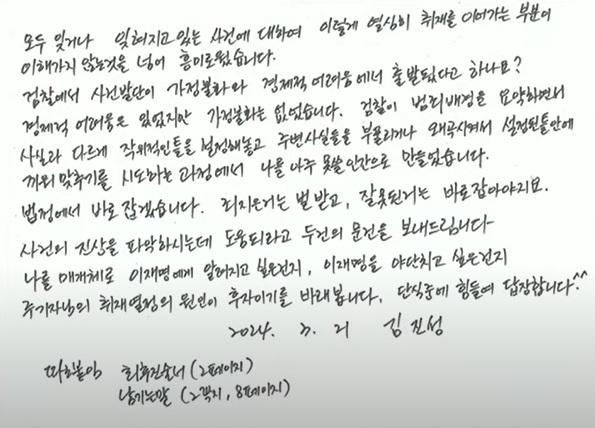 모두 잊거나 잊혀지고 있는 사건에 대하여 이렇게 열심히 취재를 이어가는 부분이
이해가지 않는것을 넘어 흥미로웠습니다.
검찰에서 사건발단이 가정불화와 경제적 어려움에서 출발됐다고 하나요?
경제적 어려움은 있었지만 가정불화는 없었습니다. 검찰이 범죄배경을 요약하면서
사실과 다르게 작위적인틀을 설정해놓고 주변사실들을 부풀리거나 왜곡시켜서 설정된틀안에
끼워 맞추기를 시도하는 과정에서 나를 아주 못쓸인간으로 만들었습니다.
법정에서 바로 잡겠습니다. 죄지은거는 벌 받고, 잘못된거는 바로잡아야지요.
사건의 진상을 파악하시는데 도움되라고 두건의 문건을 보내드립니다
나를 매개체로 이재명에게 알려지고 싶은건지, 이재명을 야단치고 싶은건지
주기자님의 취재열정의 원인이 후자이기를 바래봅니다. 단식중에 힘들여 답장합니다.^^
2024. 3. 21 김진성
따로붙임 최후진술서 (2페이지)
남기는말 (2꼭지, 8페이지)